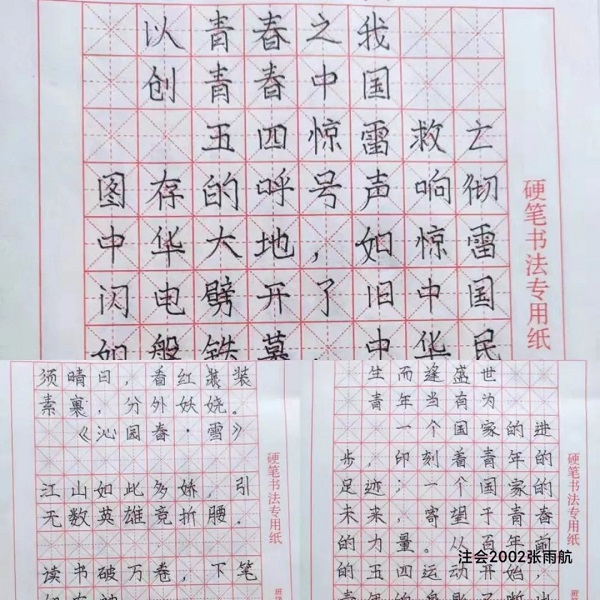 以青春之我
创青春中国
五四惊雷救亡
图存的呼号声响彻
中华大地，如惊雷
闪电劈开了旧中国
如般铁幕，中华民
硬笔书法专用纸
须晴日，看红装
素裹，分外妖娆。
《沁园春·雪》
江山如此多娇，引
无数英雄竞折腰。
读书破万卷，下笔
如有神
硬笔书法专用纸
生而逢盛世
青年当有为
一个国家的进
步，印刻着青年的
足迹；一个国家的
未来，寄望于青春
的力量。从百年前
的五四运动开始，
硬笔书法专用纸
注会2002张雨航